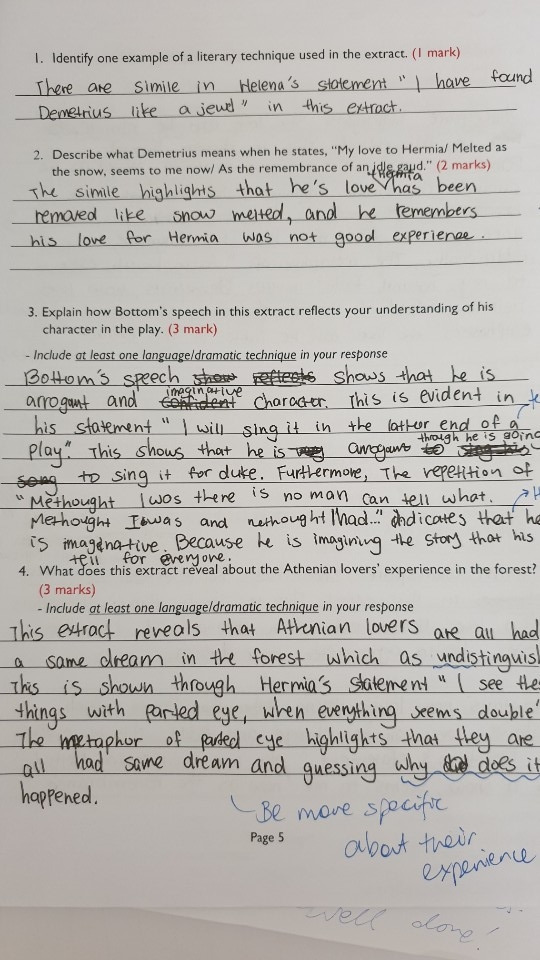 1. Identify one example of a literary technique used in the extract. (1 mark)
There are simile in Helena's statement "I have found
Demetrius like a jewel" in this extract.
2. Describe what Demetrius means when he states, "My love to Hermia/ Melted as
the snow, seems to me now/ As the remembrance of an idle gaud." (2 marks)
Hermia
The simile highlights that he's love has been
removed like snow melted, and he remembers
his love for Hermia was not good experience.
3. Explain how Bottom's speech in this extract reflects your understanding of his
character in the play. (3 mark)
- Include at least one language/dramatic technique in your response
Bottom's speech show reflects shows that he is
imaginative
arrogant and confident character. This is evident in
his statement "I will sing it in the latter end of a
though he is going
play" This shows that he is arrogant to
song to sing it for duke. Furthermore, The repetition of
"Methought I was there is no man can tell what.
Methought I was and methought I had..." indicates that he
is imagenative. Because he is imagining the story that his
tell for everyone.
4. What does this extract reveal about the Athenian lovers' experience in the forest?
(3 marks)
- Include at least one language/dramatic technique in your response
This extract reveals that Athenian lovers are all had
a same dream in the forest which as undistinguis
This is shown through Hermia's statement "I see the
things with parted eye, when everything seems double"
The metaphor of parted eye highlights that they are
all had same dream and guessing why did does it
happened.
Be more specific
about their
experience
Page 5
well done!